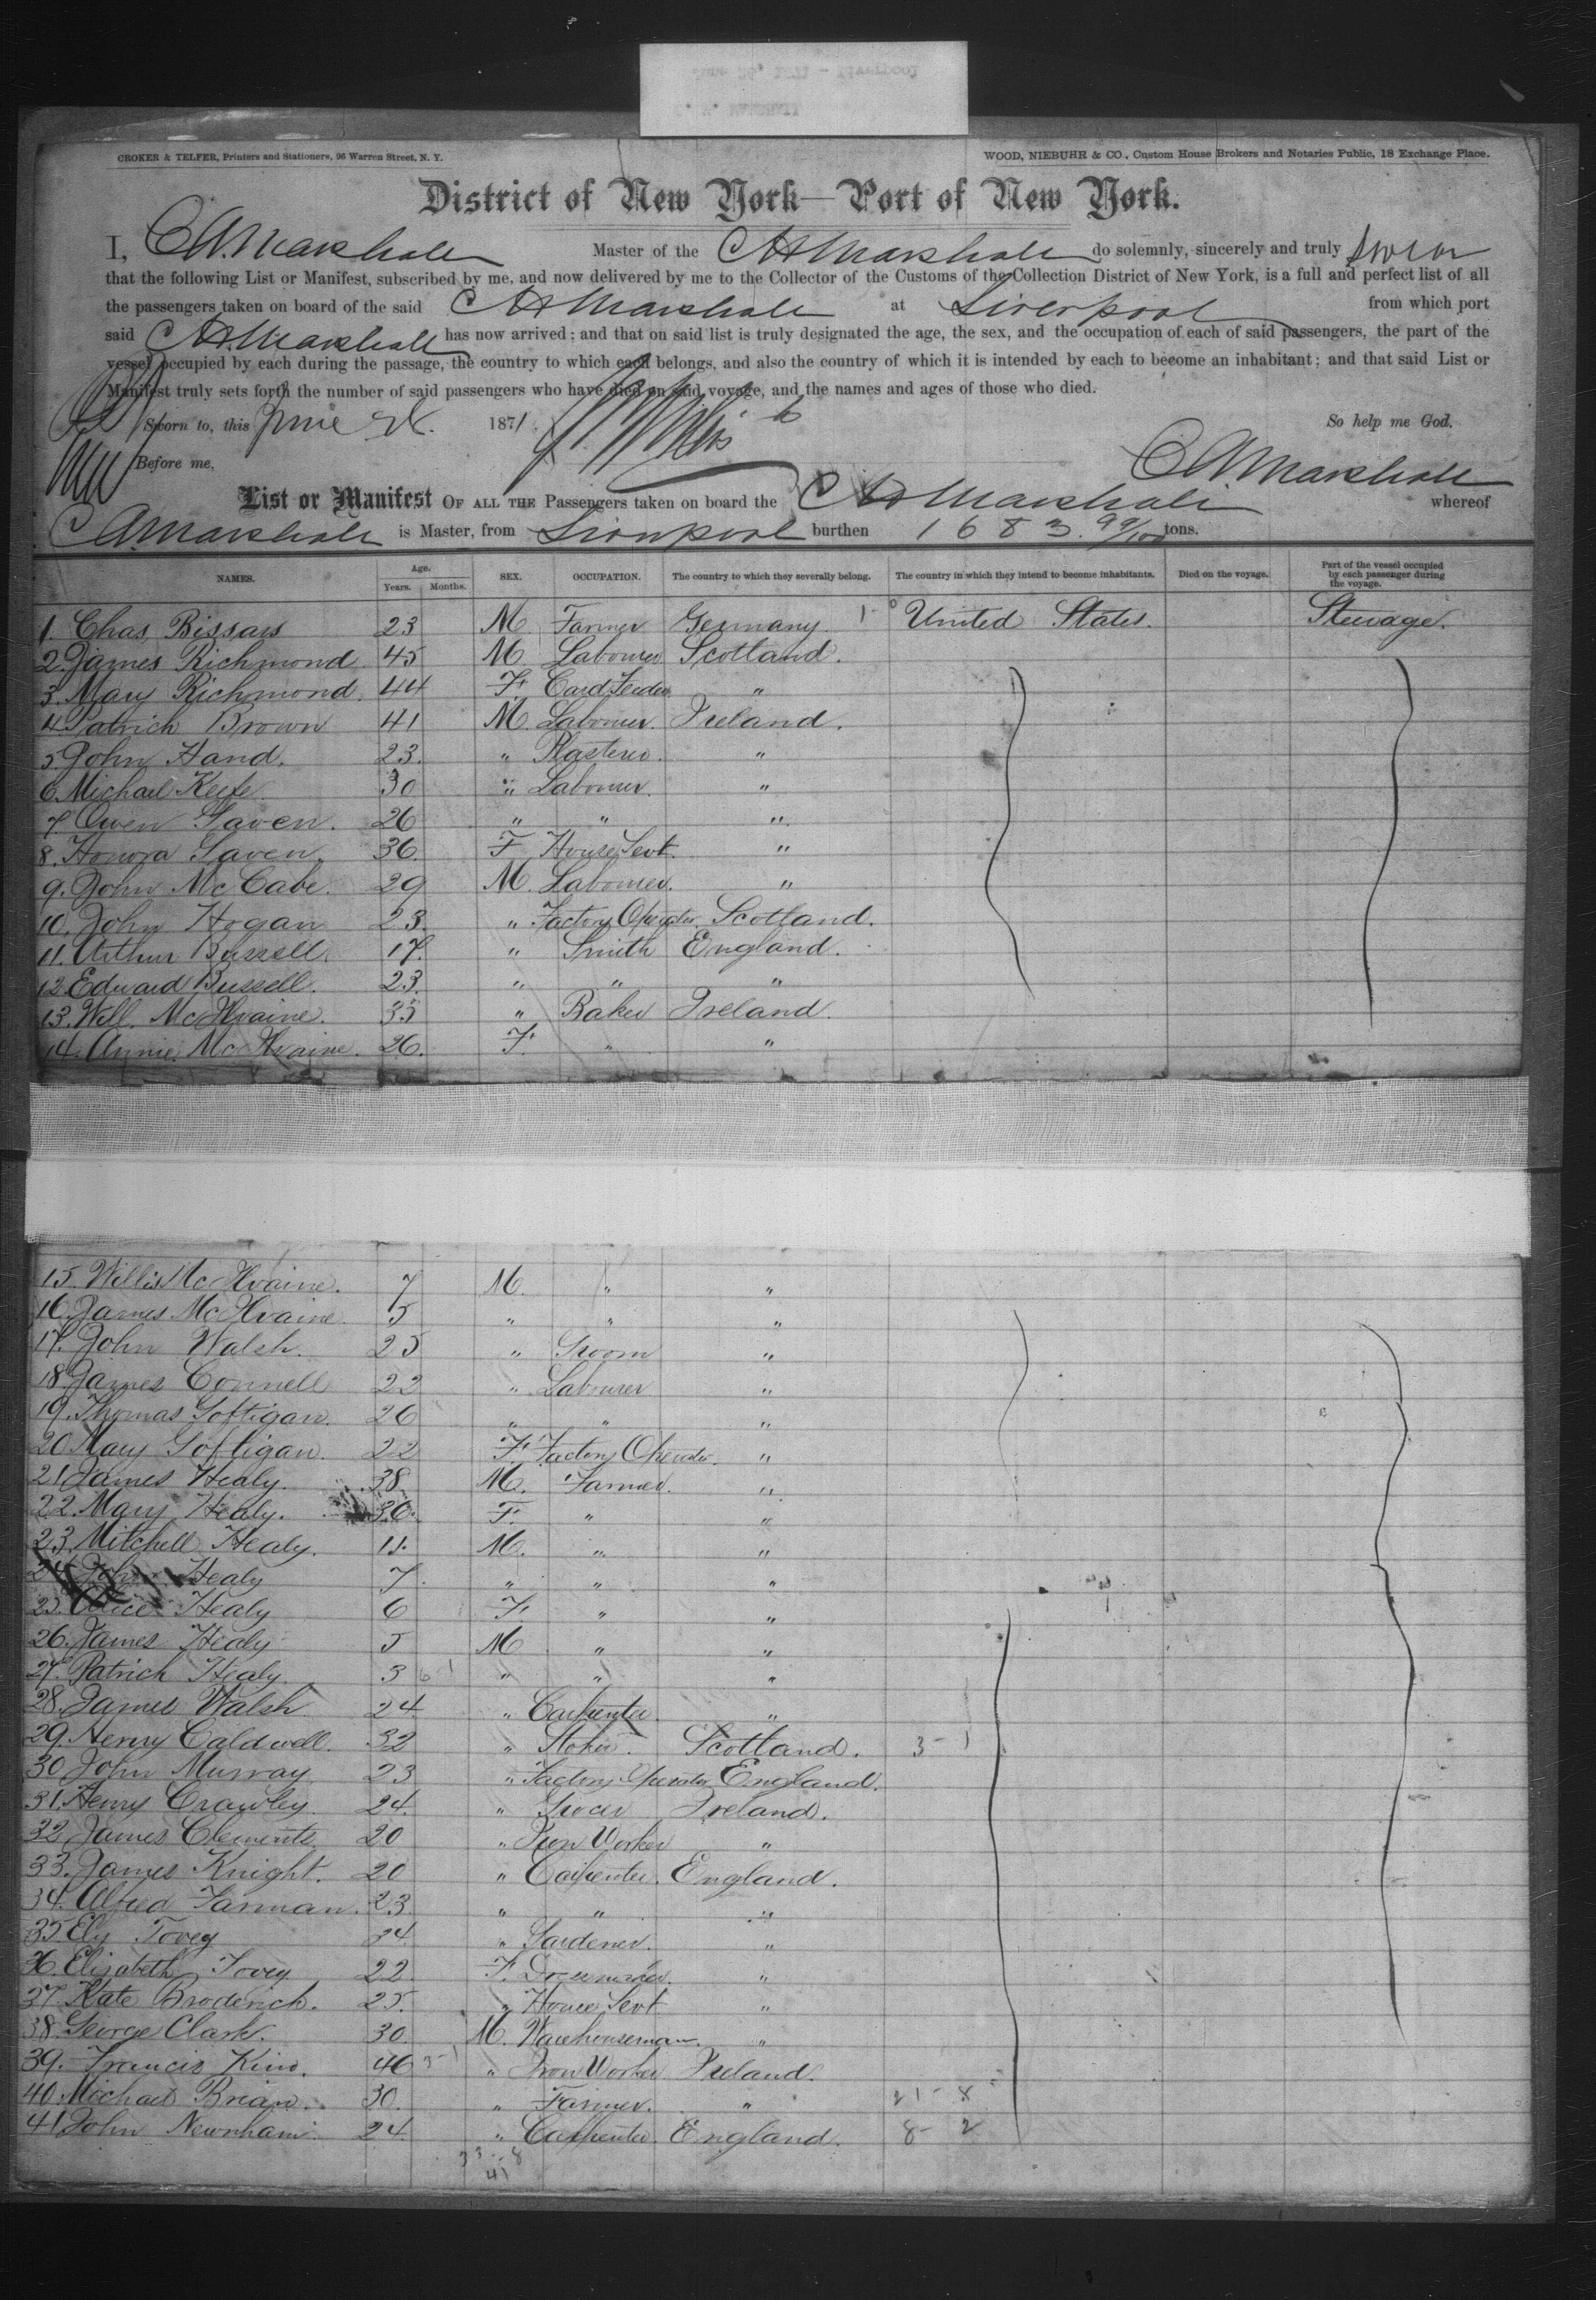 June 26, 1871 - Liverpool
C. H. MARSHALL
CROKER & TELFER, Printers and Stationers, 96 Warren Street, N. Y.
WOOD, NIEBUHR & CO., Custom House Brokers and Notaries Public, 18 Exchange Place.
District of New York—Port of New York.
I, C A Marshall Master of the C H Marshall do solemnly, sincerely and truly swear
that the following List or Manifest, subscribed by me, and now delivered by me to the Collector of the Customs of the Collection District of New York, is a full and perfect list of all
the passengers taken on board of the said C H Marshall at Liverpool from which port
said C H Marshall has now arrived; and that on said list is truly designated the age, the sex, and the occupation of each of said passengers, the part of the
vessel occupied by each during the passage, the country to which each belongs, and also the country of which it is intended by each to become an inhabitant; and that said List or
Manifest truly sets forth the number of said passengers who have died on said voyage, and the names and ages of those who died.
Sworn to, this June 26 1871. So help me God.
Before me, C A Marshall
List or Manifest OF ALL THE Passengers taken on board the C H Marshall whereof
C A Marshall is Master, from Liverpool burthen 1683. 99/100 tons.
NAMES. Age. Years. Months. SEX. OCCUPATION. The country to which they severally belong. The country in which they intend to become inhabitants. Died on the voyage. Part of the vessel occupied by each passenger during the voyage.
1. Chas Bissars 23 M Farmer Germany 1 - 0 United States. Steerage.
2. James Richmond 45 M Labourer Scotland.
3. Mary Richmond 44 F. Card Feeder "
4. Patrick Brown 41 M. Labourer. Ireland.
5 John Hand. 23. " Plasterer. "
6. Michael Keefe 30 " Labourer. "
7. Owen Gaven. 26 " " "
8. Honora Gaven. 36. F House Servt. "
9. John McCabe. 29 M. Labourer. "
10. John Hogan 23. " Factory Operator. Scotland.
11. Arthur Bussell. 17. " Smith England.
12 Edward Bussell. 23. " " "
13. Will. McIlvaine. 35 " Baker Ireland.
14. Annie McIlvaine. 26. F. " "
15. Willis McIlvaine. 7 M. " "
16. James McIlvaine. 5 " " "
17. John Walsh. 25 " Groom "
18. James Connell 22 " Labourer "
19. Thomas Goftigan. 26 " " "
20. Mary Goftigan. 22 F. Factory Operator. "
21. James Healy. 38. M. Farmer. "
22. Mary Healy. 36. F. " "
23. Mitchell Healy. 11. M. " "
24. John Healy 7. " " "
25. Alice Healy 6 F. " "
26. James Healy 5 M " "
27. Patrick Healy. 3 " " "
28. James Walsh 24 " Carpenter. "
29. Henry Caldwell. 32 " Stoker. Scotland. 3 - 1
30 John Murray 23 " Factory Operator England.
31. Henry Crawley. 24. " Grocer Ireland.
32. James Clements. 20 " Iron Worker "
33. James Knight. 20 " Carpenter. England.
34. Alfred Farman. 23. " " "
35. Ely Tovey 24 " Gardener. "
36. Elizabeth Tovey 22. F. Dressmaker. "
37. Kate Broderick. 25. " House Servt "
38. George Clark. 30. M. Warehouseman. "
39. Francis King. 46 " Iron Worker Ireland.
40. Michael Brian. 30. " Farmer. " 21 - 8
41 John Newnham. 24. " Carpenter. England. 8 - 2
33 - 8
41